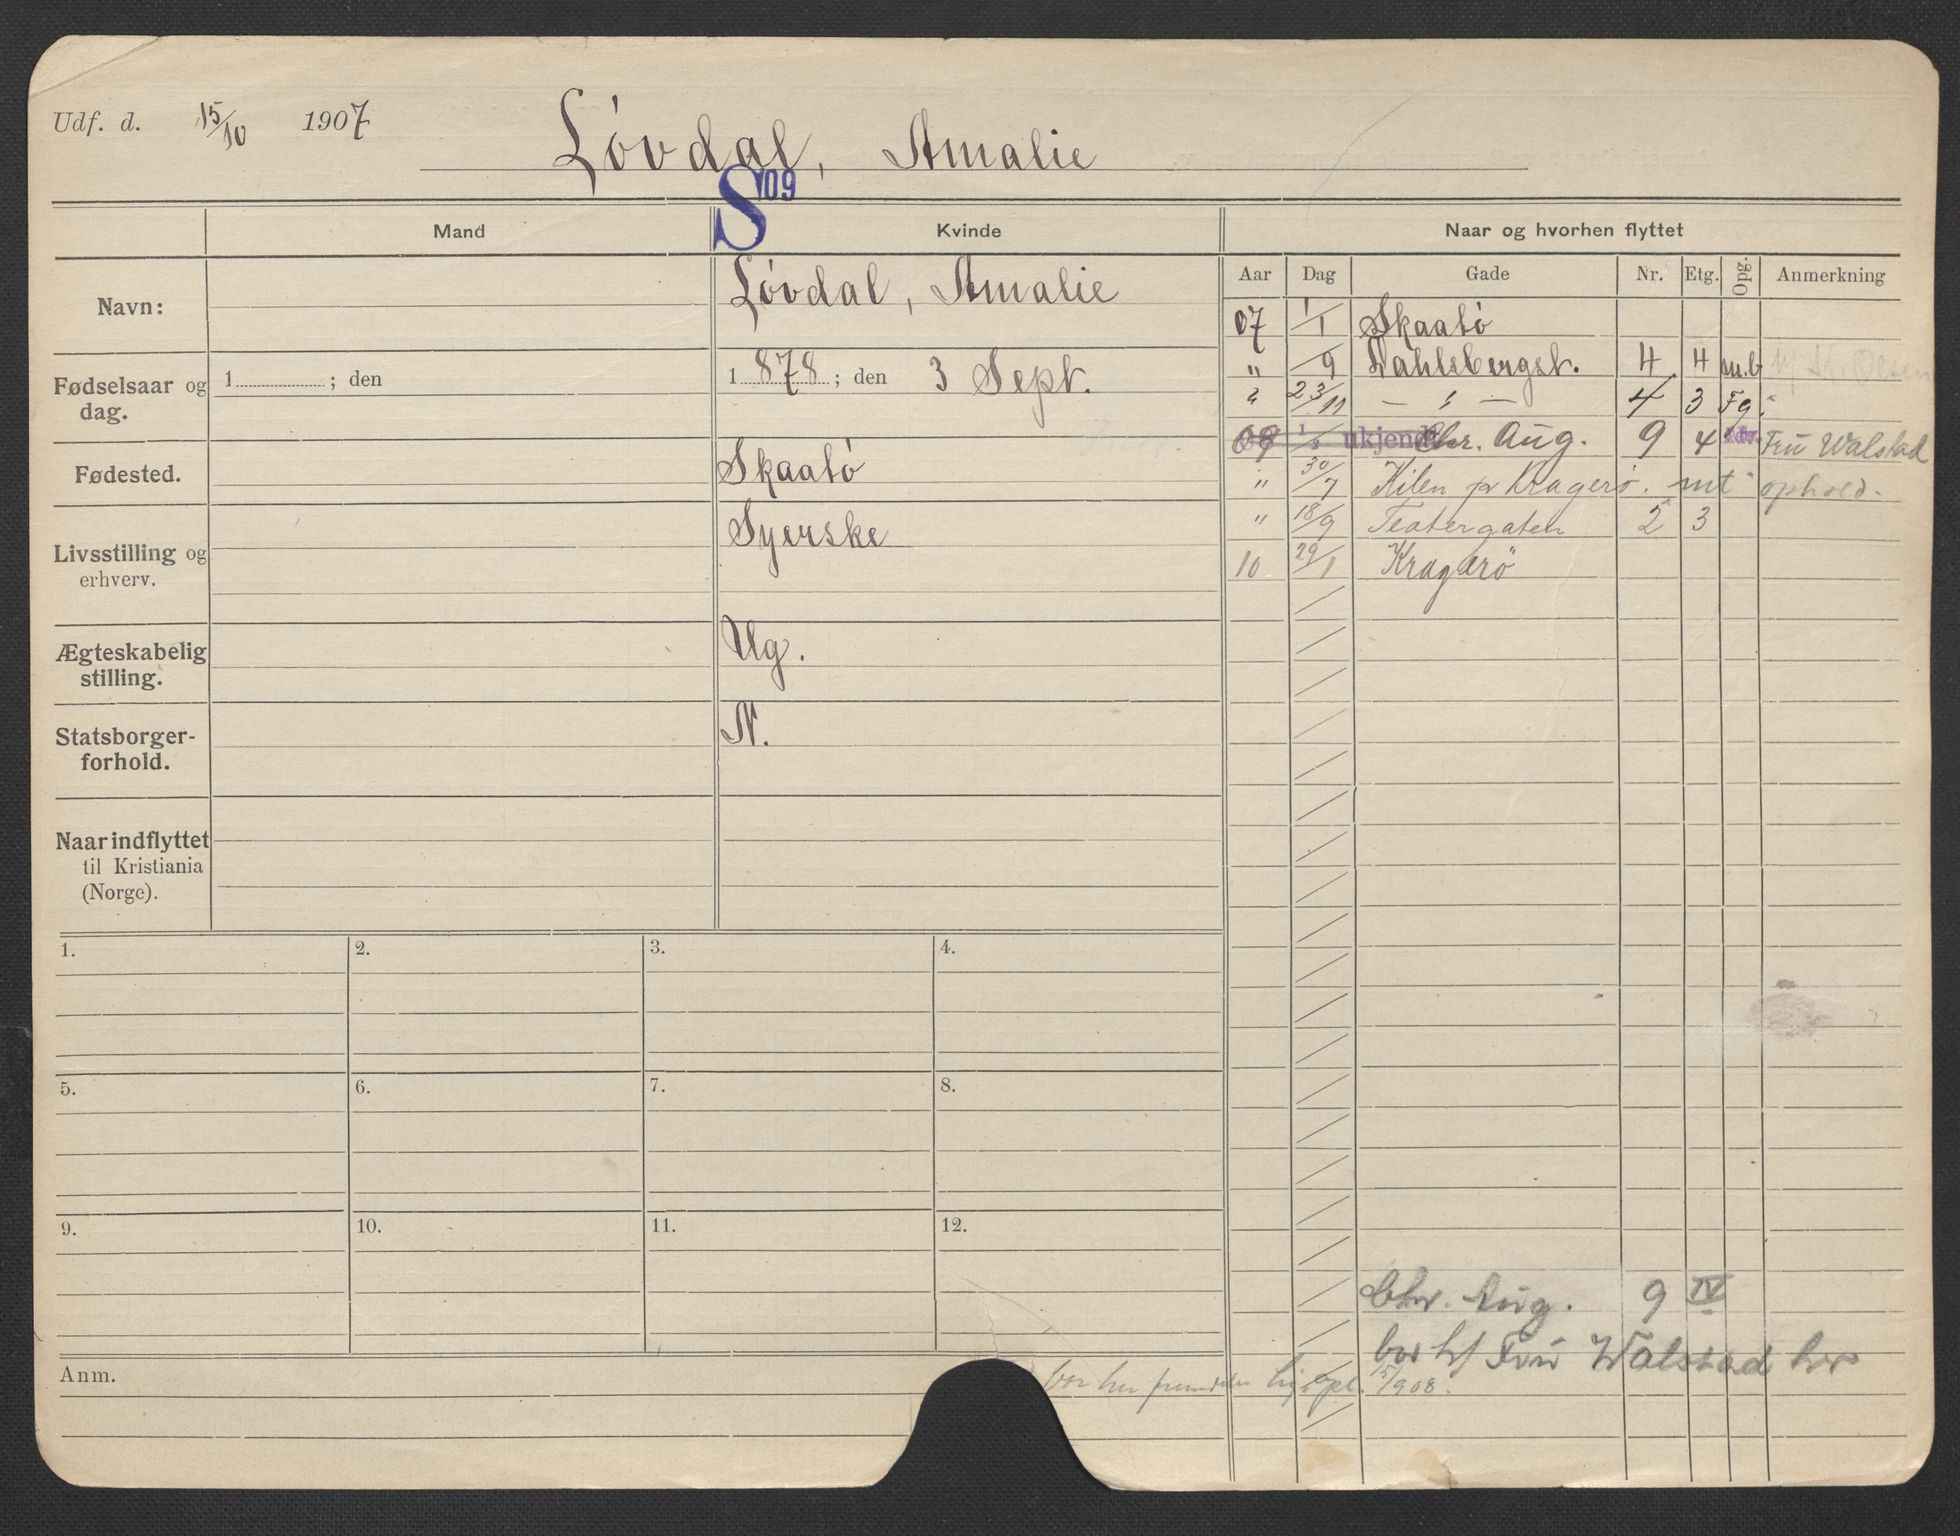 Udf. d. 15/10 1907 Løvdal, Amalie
S 09
Mand Kvinde Naar og hvorhen flyttet
Aar Dag Gade Nr. Etg. Opg. Anmerkning
Navn: Løvdal, Amalie
07 1/1 Skaatö
Fødselsaar og dag. 1 ; den 1878 ; den 3 Sept.
" /9 Dahlsbergst. 4 4 m.b Olsen
" 23/11 — " — 4 3 Fg.
09 1/2 ukjendt Chr. Aug. 9 4 Fru Walstad
Fødested. Skaatö
" 30/7 Kilen pr Kragerö. mt ophold.
Livsstilling og erhverv. Syerske
" 18/9 Teatergaten 2 3
10 29/1 Kragerö
Ægteskabelig stilling. Ug.
Statsborger-
forhold. N.
Naar indflyttet
til Kristiania
(Norge).
1. 2. 3. 4.
5. 6. 7. 8.
9. 10. 11. 12.
Chr. Aug. 9 IV
bor h/ Fru Walstad her
Anm.
bor her fremdeles 15/908.